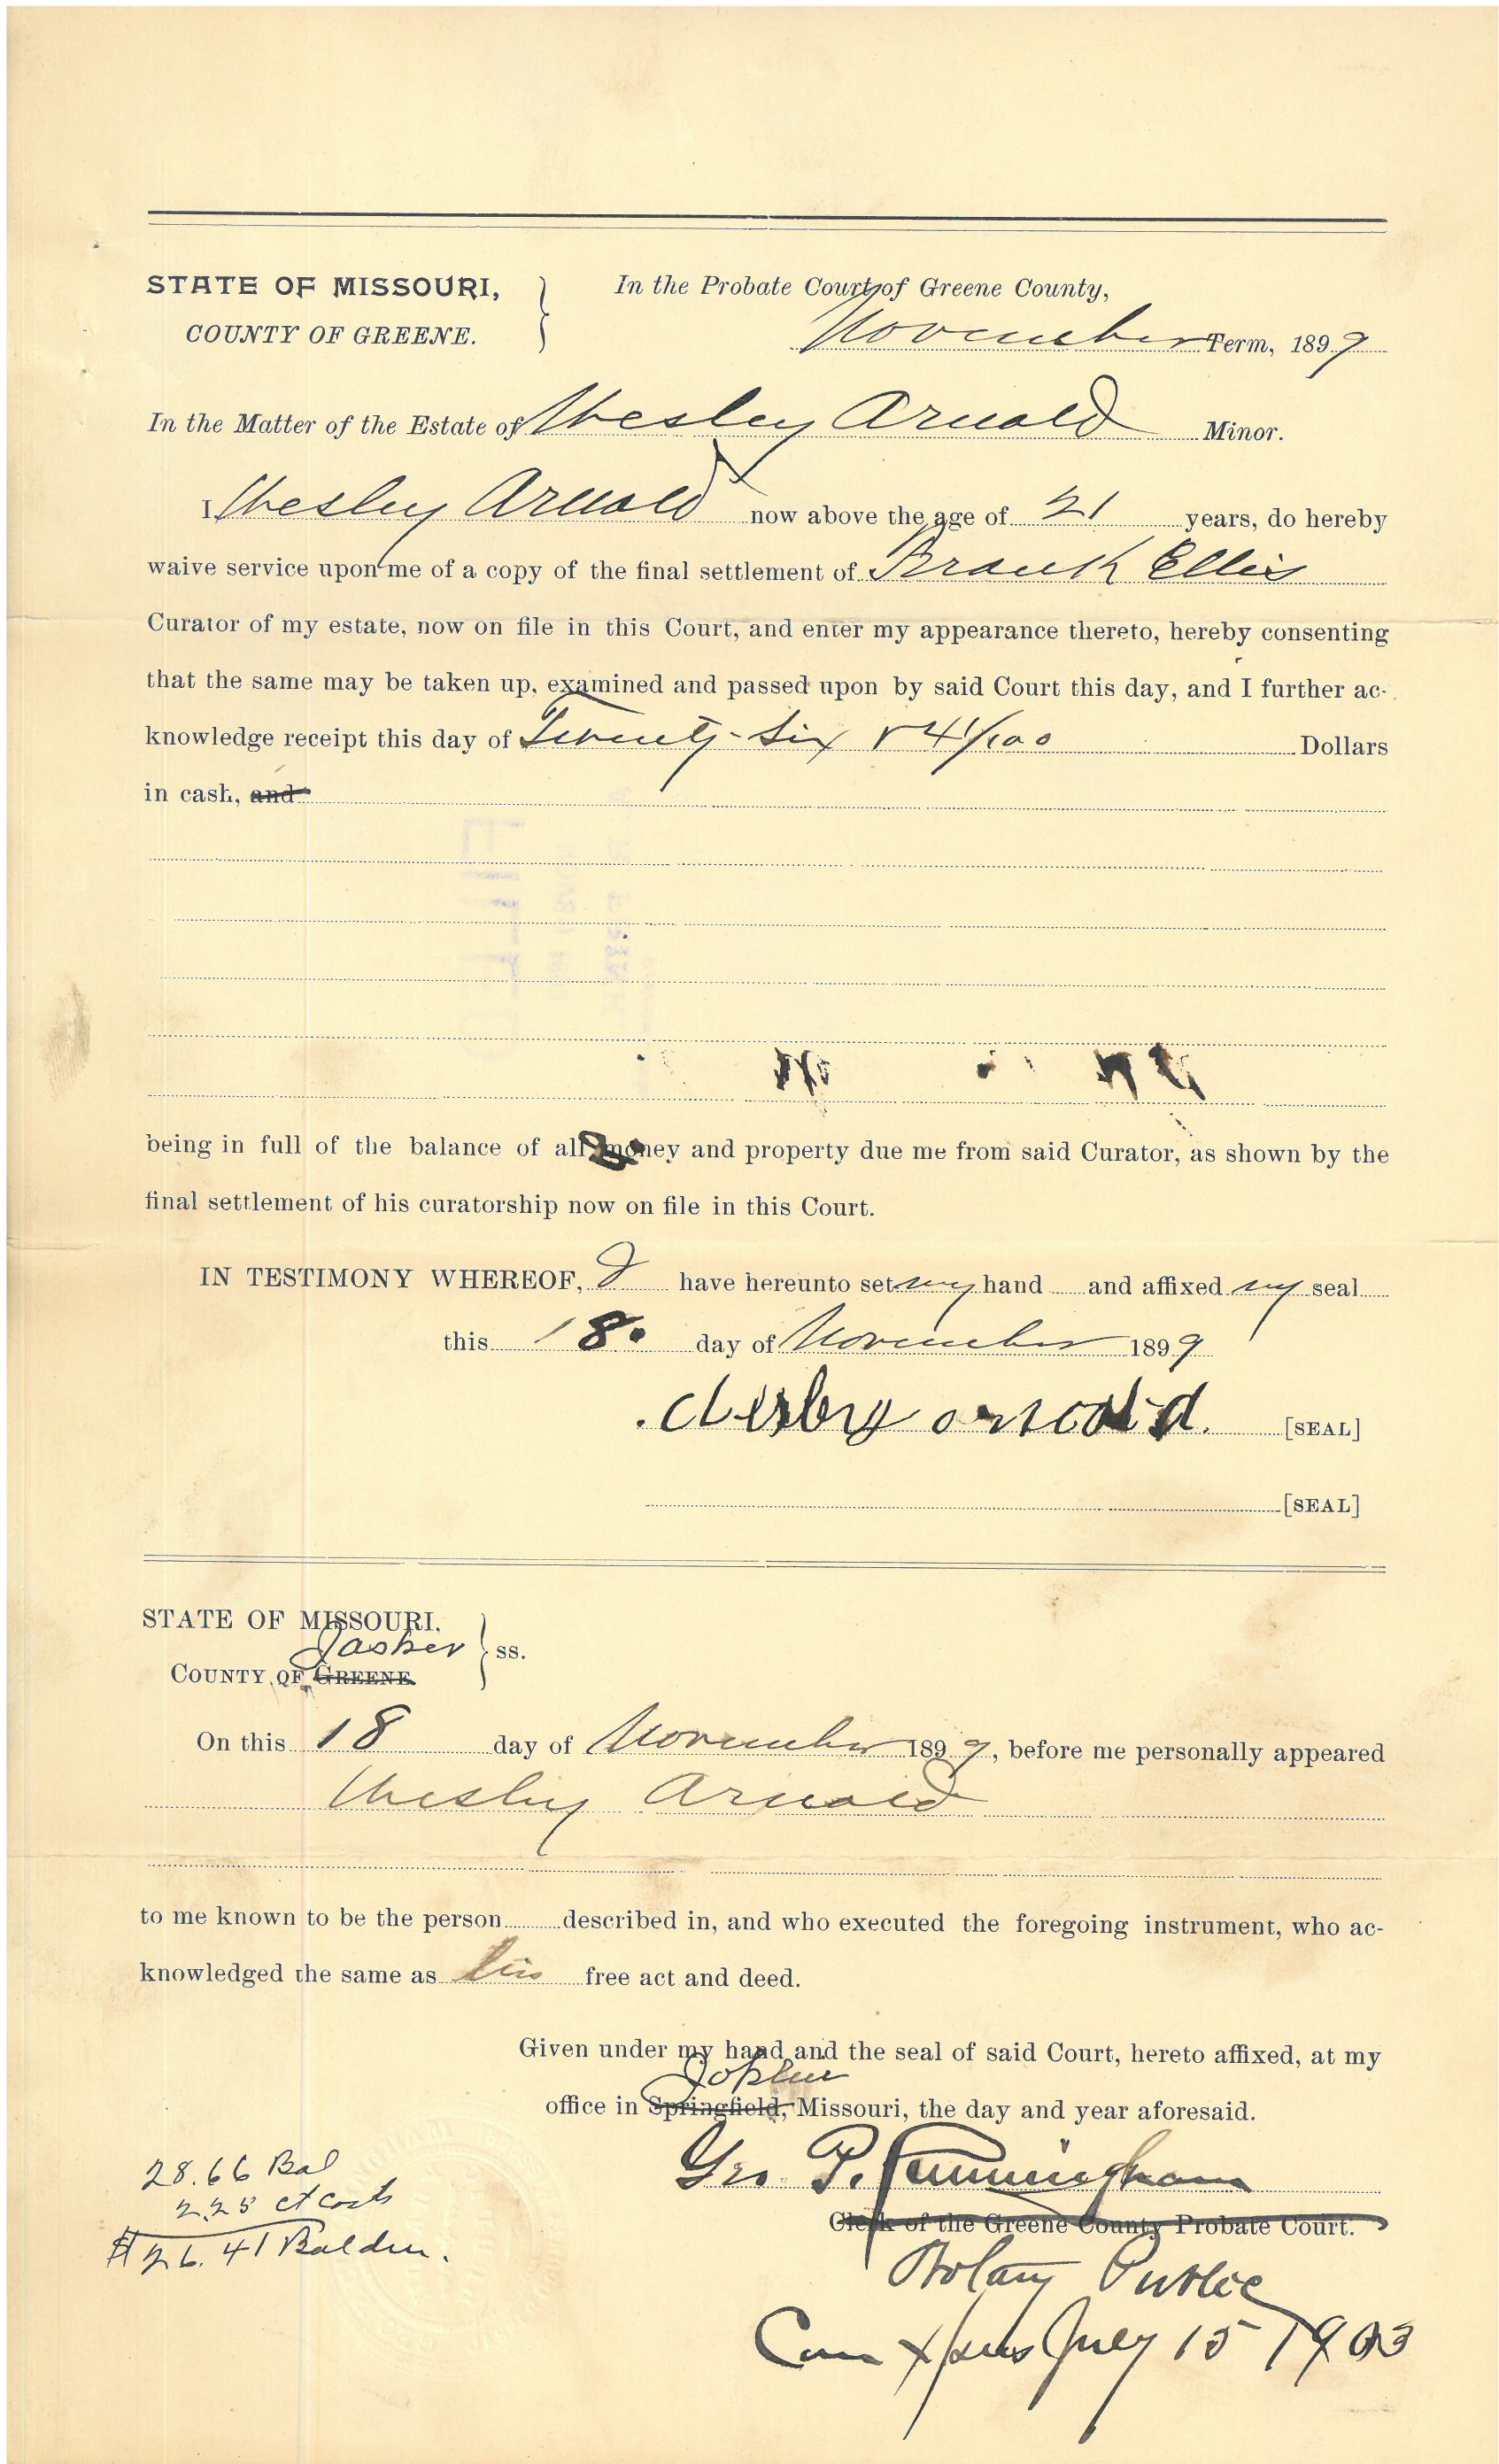 STATE OF MISSOURI, In the Probate Court of Greene County,
COUNTY OF GREENE. November Term, 1899
In the Matter of the Estate of Wesley Arnold Minor.
I Wesley Arnold now above the age of 21 years, do hereby
waive service upon me of a copy of the final settlement of Brank Ellis
Curator of my estate, now on file in this Court, and enter my appearance thereto, hereby consenting
that the same may be taken up, examined and passed upon by said Court this day, and I further ac-
knowledge receipt this day of Twenty-Six & 41/100 Dollars
in cash, and
being in full of the balance of all money and property due me from said Curator, as shown by the
final settlement of his curatorship now on file in this Court.
IN TESTIMONY WHEREOF, I have hereunto set my hand and affixed my seal
this 18 day of November 1899
Wesley arnold. [SEAL]
[SEAL]
STATE OF MISSOURI.
Jasper ss.
COUNTY OF GREENE
On this 18 day of November 1899, before me personally appeared
Wesley Arnold
to me known to be the person described in, and who executed the foregoing instrument, who ac-
knowledged the same as his free act and deed.
Given under my hand and the seal of said Court, hereto affixed, at my
Joplin
office in Springfield, Missouri, the day and year aforesaid.
Geo. P. Cunningham
Clerk of the Greene County Probate Court.
Notary Public
Com Xpires July 15 1903
28.66 Bal
2.25 ct costs
$26.41 Bal due.